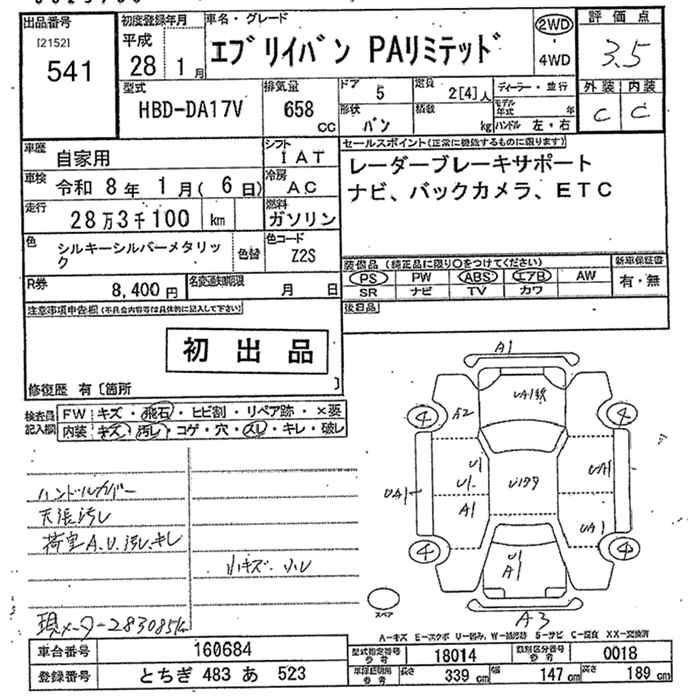 出品番号
[2152]
541
初度登録年月
平成
28 1月
車名・グレード
エブリイバン PAリミテッド
2WD
・
4WD
評価点
3.5
外装 内装
C C
型式
HBD-DA17V
排気量
658
cc
ドア
5
定員
2[4]人
形状
バン
積載
kg
ディーラー・並行
モデル
年式 年
ハンドル 左・右
車歴
自家用
シフト
IAT
車検
令和 8年 1月( 6日)
冷房
AC
走行
28万3千100 km
燃料
ガソリン
色
シルキーシルバーメタリッ
ク
色替
色コード
Z2S
R券
8,400円
名変通知期限
月 日
セールスポイント(正常に機能するものに限ります)
レーダーブレーキサポート
ナビ、バックカメラ、ETC
装備品(純正品に限り○をつけてください)
PS PW ABS エアB AW
SR ナビ TV カワ
新車保証書
有・無
後日品
注意事項申告欄(不具合内容等は具体的に記入して下さい)
初出品
修復歴 有〔箇所 〕
検査員
記入欄
FW キズ・飛石・ヒビ割・リペア跡・×要
内装 キズ・汚レ・コゲ・穴・スレ・キレ・破レ
ハンドルカバー
天張汚レ
荷室A.U.汚レ.キレ
小キズ.凹レ
現メーター283085km
A1
A2
4
4
4
4
U1
U1
A1
UA1
UA1
UA1
U1
A1
A3
スペア
A-キズ E-エクボ U-凹み, W-補修跡 S-サビ C-腐食 XX-交換済
車台番号
160684
登録番号
とちぎ 483 あ 523
型式指定番号
参考
18014
類別区分番号
参考
0018
車庫証明用
参考
長さ
339 cm
幅
147 cm
高さ
189 cm